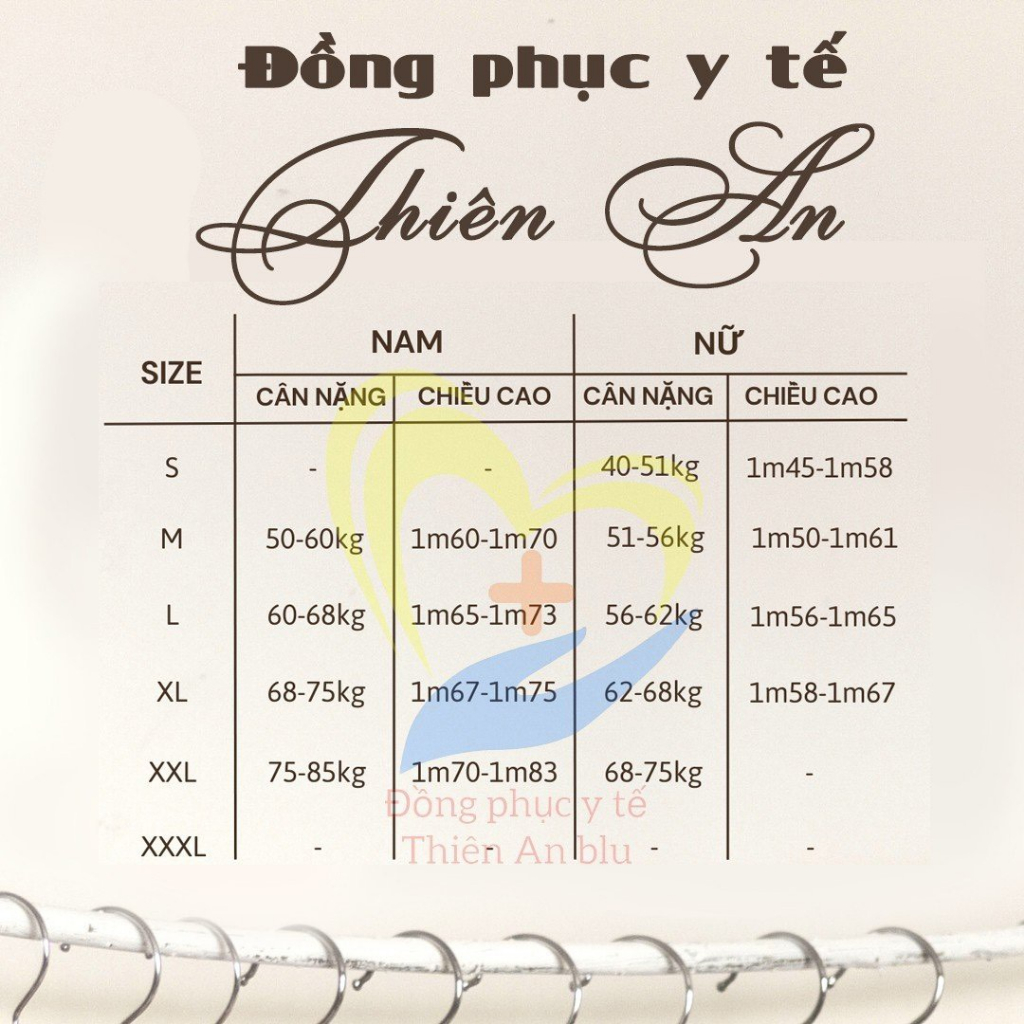 Đồng phục y tế
Thiên Ân
SIZE NAM NỮ
CÂN NẶNG CHIỀU CAO CÂN NẶNG CHIỀU CAO
S - - 40-51kg 1m45-1m58
M 50-60kg 1m60-1m70 51-56kg 1m50-1m61
L 60-68kg 1m65-1m73 56-62kg 1m56-1m65
XL 68-75kg 1m67-1m75 62-68kg 1m58-1m67
XXL 75-85kg 1m70-1m83 68-75kg -
Đồng phục y tế
XXXL - - - -
Thiên An blu